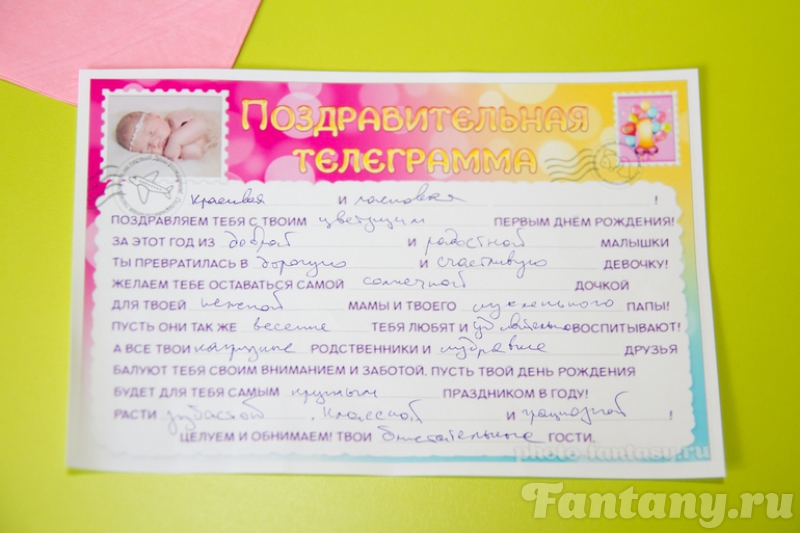 ПОЗДРАВИТЕЛЬНАЯ
ТЕЛЕГРАММА
Красивая и ласковая !
ПОЗДРАВЛЯЕМ ТЕБЯ С ТВОИМ цветущим ПЕРВЫМ ДНЁМ РОЖДЕНИЯ!
ЗА ЭТОТ ГОД ИЗ доброй И радостной МАЛЫШКИ
ТЫ ПРЕВРАТИЛАСЬ В дорогую И счастливую ДЕВОЧКУ!
ЖЕЛАЕМ ТЕБЕ ОСТАВАТЬСЯ САМОЙ солнечной ДОЧКОЙ
ДЛЯ ТВОЕЙ нежной МАМЫ И ТВОЕГО ПАПЫ!
ПУСТЬ ОНИ ТАК ЖЕ ТЕБЯ ЛЮБЯТ И ВОСПИТЫВАЮТ!
А ВСЕ ТВОИ РОДСТВЕННИКИ И ДРУЗЬЯ
БАЛУЮТ ТЕБЯ СВОИМ ВНИМАНИЕМ И ЗАБОТОЙ. ПУСТЬ ТВОЙ ДЕНЬ РОЖДЕНИЯ
БУДЕТ ДЛЯ ТЕБЯ САМЫМ крутым ПРАЗДНИКОМ В ГОДУ!
РАСТИ зубастой , классной И грациозной !
ЦЕЛУЕМ И ОБНИМАЕМ! ТВОИ блистательные ГОСТИ.
photo-fantasy.ru
Fantany.ru